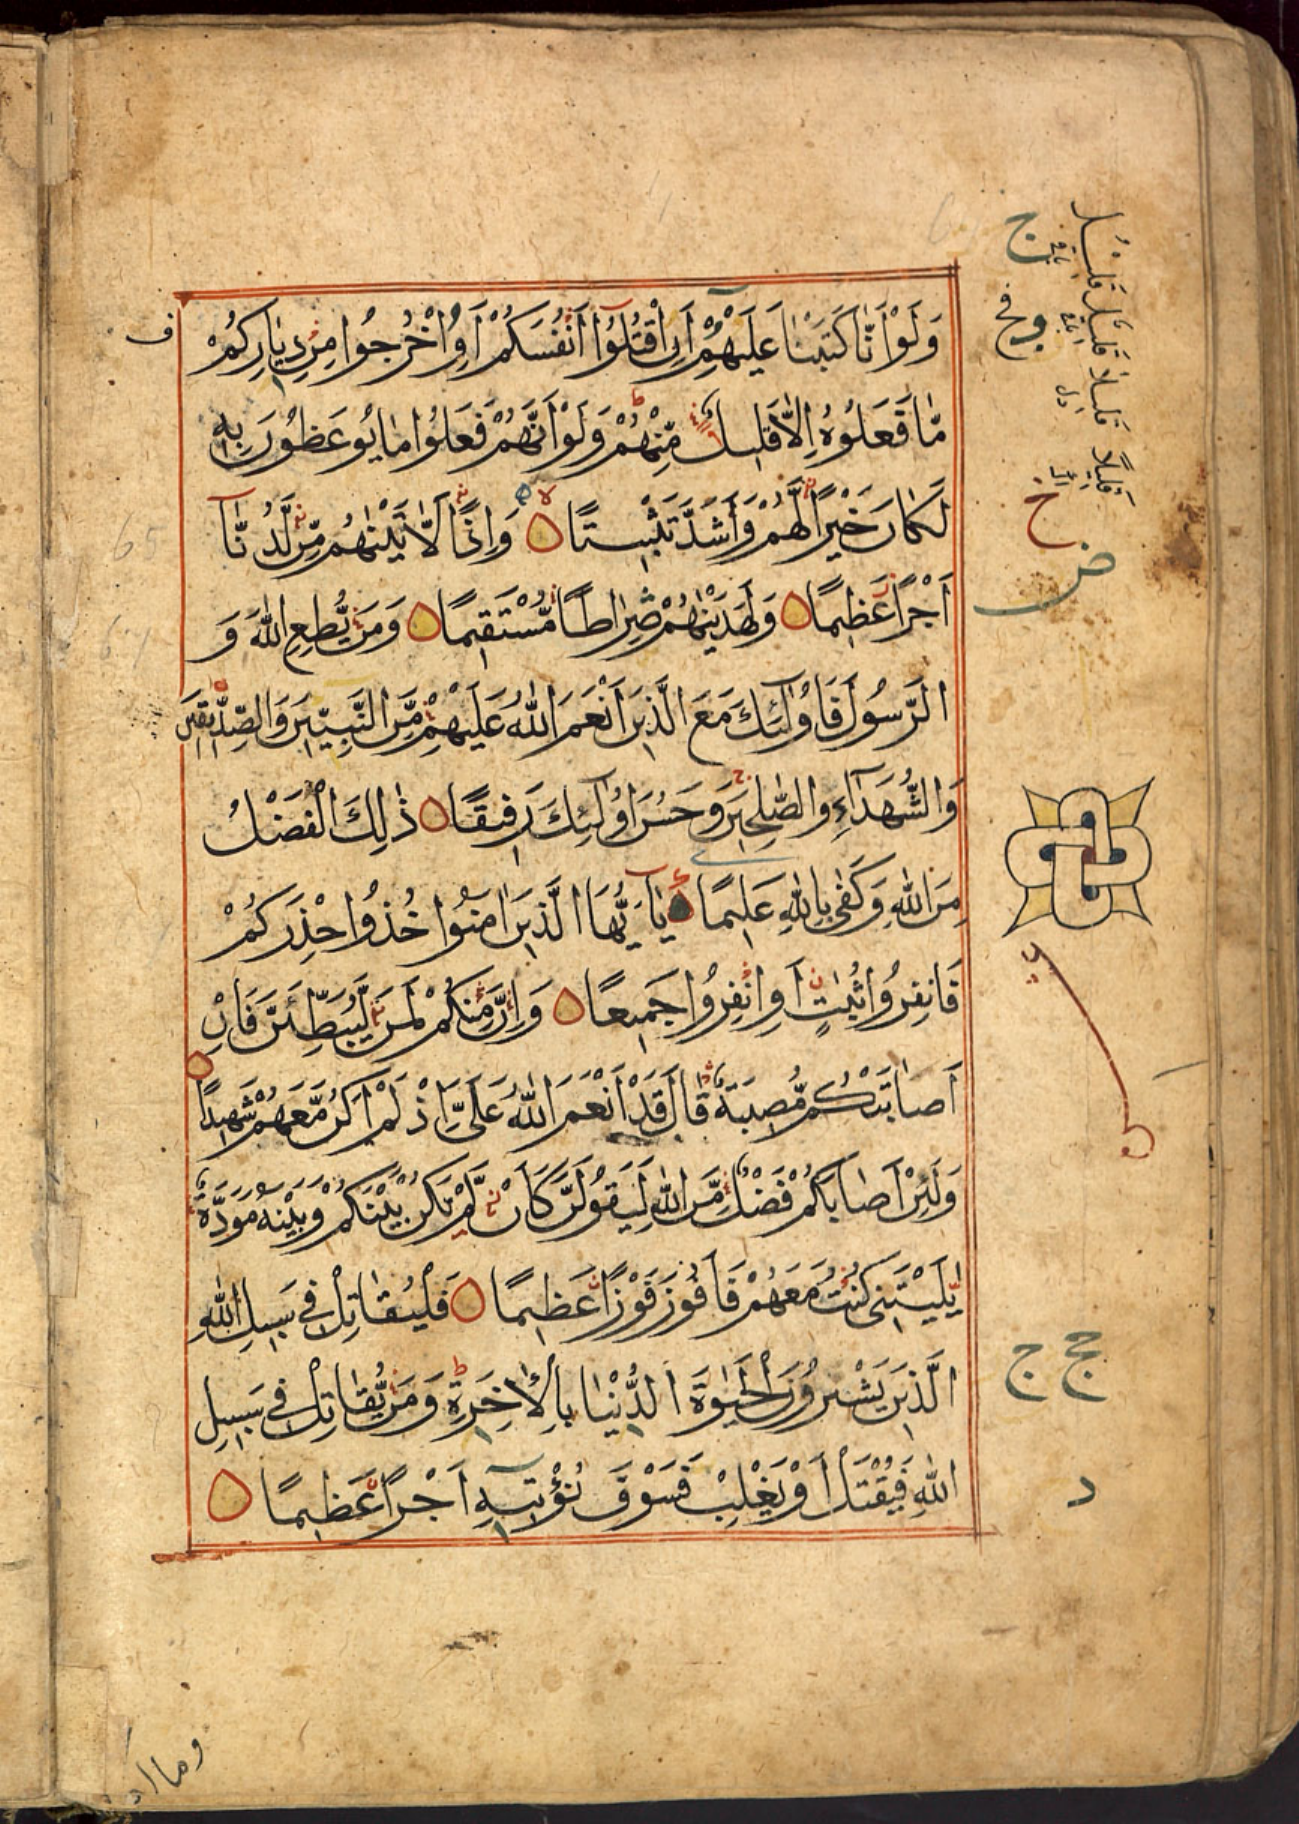 وَلَوْ اَنَّا كَتَبْنَا عَلَيْهِمْ اَنِ اقْتُلُوٓا اَنْفُسَكُمْ اَوِ اخْرُجُوا مِنْ دِيَارِكُمْ
مَّا فَعَلُوهُ اِلَّا قَلِيلٌ مِّنْهُمْ وَلَوْ اَنَّهُمْ فَعَلُوا مَا يُوعَظُونَ بِهِ
لَكَانَ خَيْرًا لَّهُمْ وَأَشَدَّ تَثْبِيتًا وَاِذًا لَّاٰتَيْنٰهُمْ مِّنْ لَّدُنَّآ
اَجْرًا عَظِيمًا وَلَهَدَيْنٰهُمْ صِرَاطًا مُّسْتَقِيمًا وَمَنْ يُّطِعِ اللّٰهَ وَ
الرَّسُولَ فَاُولٰٓئِكَ مَعَ الَّذِينَ اَنْعَمَ اللّٰهُ عَلَيْهِمْ مِّنَ النَّبِيّٖنَ وَالصِّدِّيقِينَ
وَالشُّهَدَآءِ وَالصّٰلِحِينَ وَحَسُنَ اُولٰٓئِكَ رَفِيقًا ذٰلِكَ الْفَضْلُ
مِنَ اللّٰهِ وَكَفٰى بِاللّٰهِ عَلِيمًا يَآ اَيُّهَا الَّذِينَ اٰمَنُوا خُذُوا حِذْرَكُمْ
فَانْفِرُوا ثُبَاتٍ اَوِ انْفِرُوا جَمِيعًا وَاِنَّ مِنْكُمْ لَمَنْ لَّيُبَطِّئَنَّ فَاِنْ
اَصَابَتْكُمْ مُّصِيبَةٌ قَالَ قَدْ اَنْعَمَ اللّٰهُ عَلَىَّ اِذْ لَمْ اَكُنْ مَّعَهُمْ شَهِيدًا
وَلَئِنْ اَصَابَكُمْ فَضْلٌ مِّنَ اللّٰهِ لَيَقُولَنَّ كَاَنْ لَّمْ تَكُنْ بَيْنَكُمْ وَبَيْنَهُ مَوَدَّةٌ
يٰلَيْتَنِى كُنْتُ مَعَهُمْ فَاَفُوزَ فَوْزًا عَظِيمًا فَلْيُقَاتِلْ فِى سَبِيلِ اللّٰهِ
الَّذِينَ يَشْرُونَ الْحَيٰوةَ الدُّنْيَا بِالْاٰخِرَةِ وَمَنْ يُّقَاتِلْ فِى سَبِيلِ
اللّٰهِ فَيُقْتَلْ اَوْ يَغْلِبْ فَسَوْفَ نُؤْتِيهِ اَجْرًا عَظِيمًا
ف
ج
خ
ض
ج ج
د